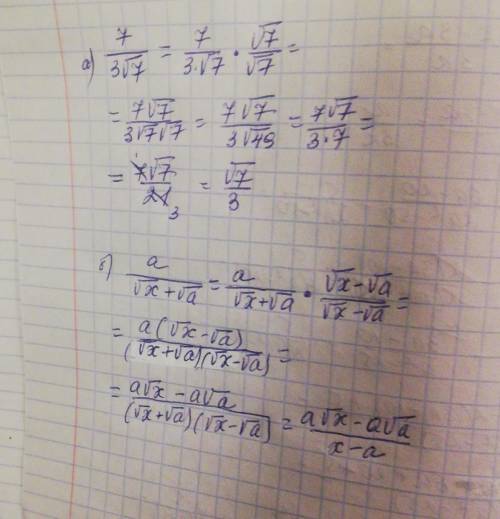 а) 7/(3√7) = 7/(3·√7) · √7/√7 =
= 7√7/(3√7√7) = 7√7/(3√49) = 7√7/(3·7) =
= 7√7/21 3 = √7/3
б) a/(√x+√a) = a/(√x+√a) · (√x-√a)/(√x-√a) =
= a(√x-√a)/((√x+√a)(√x-√a)) =
= (a√x-a√a)/((√x+√a)(√x-√a)) = (a√x-a√a)/(x-a)